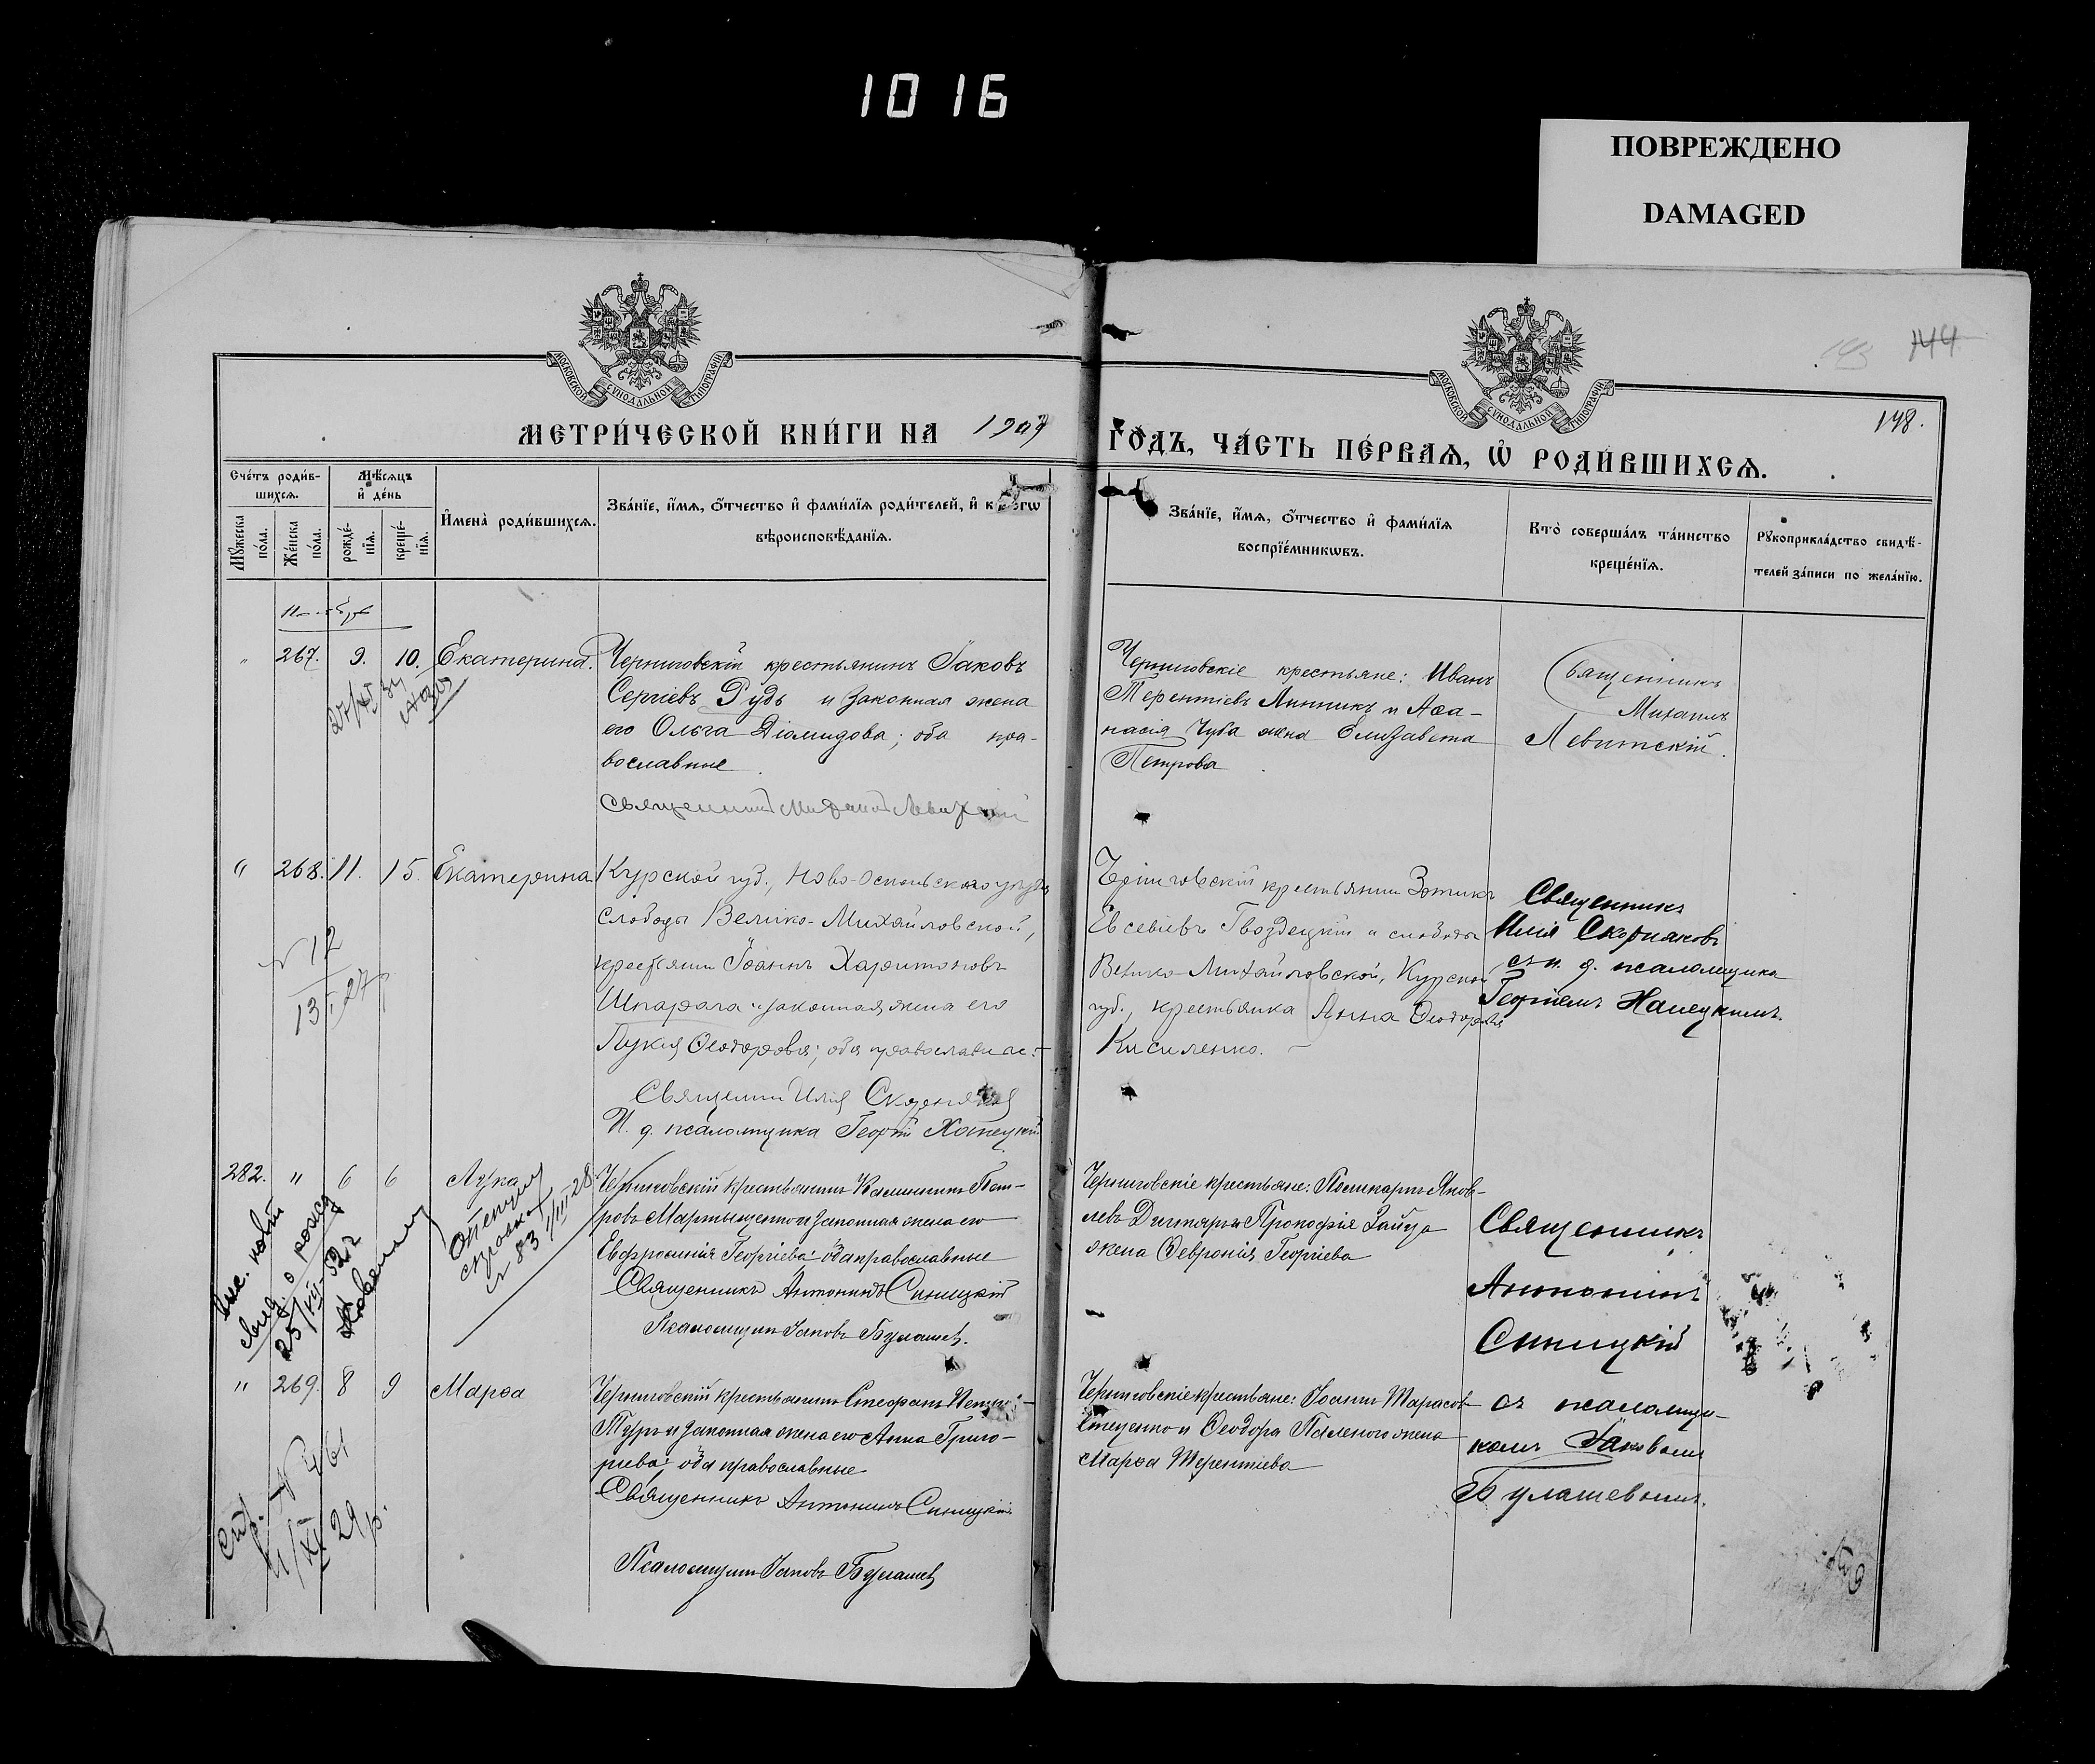 1016
ПОВРЕЖДЕНО
DAMAGED
МОСКОВСКОЙ СУНОДАЛЬНОЙ ТИПОГРАФІИ
МОСКОВСКОЙ СУНОДАЛЬНОЙ ТИПОГРАФІИ
144
148.
МЕТРИ́ЧЕСКОЙ КНИ́ГИ НА 1907 ГО́ДЪ, ЧА́СТЬ ПЕ́РВАЯ, Ѡ҆ РОДИ́ВШИХСЯ.
Сче́тъ роди́в-
шихся.
Мꙋ́жеска по́ла.
Же́нска по́ла.
Мѣ́сяцъ и҆ де́нь
рожде́-
нїя.
креще́-
нїя.
И҆мена̀ роди́вшихся.
Зва́нїе, и҆́мя, ѻ҆́тчество и҆ фами́лїя роди́телей, и҆ како́гѡ
вѣроисповѣ́данїя.
Зва́нїе, и҆́мя, ѻ҆́тчество и҆ фами́лїя
воспрїе́мникѡвъ.
Кто̀ соверша́лъ та́инство
креще́нїя.
Рꙋкоприкла́дство свидѣ́-
телей за́писи по жела́нїю.
" 267. 9. 10. Екатерина.
Черниговскій крестьянинъ Іаковъ
Сергіевъ Рудь и законная жена
его Ольга Діамидова; оба пра-
вославные
Священникъ Михаилъ Левитскій
Черниговскіе крестьяне: Иванъ
Терентіевъ Линникъ и Аѳа-
насія Чуба жена Елизавета
Петрова
Священникъ
Михаилъ
Левитскій.
" 268. 11. 15. Екатерина
Курской губ., Ново-Оскольскаго уѣзда
слободы Велико-Михайловской,
крестьянин Іоаннъ Харитоновъ
Шпарага и законная жена его
Лукія Ѳеодорова; оба православные.
Священник Илія Скорняковъ
И. д. псаломщика Георгій Ханецкій
Черниговскій крестьянин Зотикъ
Евсевіевъ Гвоздецкій и слободы
Велико-Михайловской, Курской
губ., крестьянка Анна Ѳеодорова
Кисиленко.
Священникъ
Илія Скорняковъ
съ и. д. псаломщика
Георгіемъ Ханецкимъ.
№ 12
13 I 27
282. " 6 6 Лука
Черниговскій крестьянинъ Калинникъ Пет-
ровъ Мартыщенко и законная жена его
Евфросинія Георгіева: оба православные
Священникъ Антонинъ Синицкій
Псаломщикъ Іаковъ Булашев.
Черниговскіе крестьяне: Поликарпъ Яков-
левъ Дигтярь и Прокофія Зайца
жена Ѳевронія Георгіева
Священникъ
Антонинъ
Синицкій
съ псаломщи-
комъ Іаковомъ
Булашевымъ.
№ 83 1/III 28
25/VII 32 г
" 269. 8 9 Марѳа
Черниговскій крестьянинъ Стефанъ
Туръ и законная жена его Анна Григо-
рьева; оба православные
Священникъ Антонинъ Синицкій.
Псаломщикъ Іаковъ Булашев
Черниговскіе крестьяне: Іоаннъ Тарасов
Стеценко и Ѳеодора Паленого жена
Марѳа Терентіева
№ 461
11/XI 29 р.